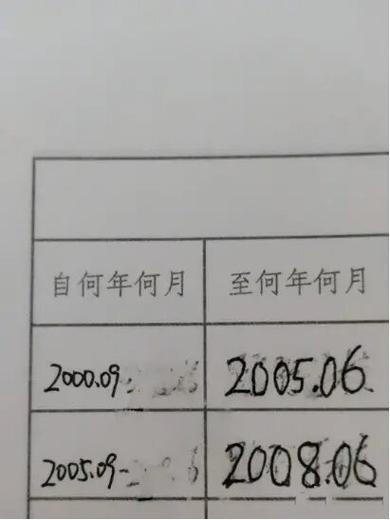 自何年何月 至何年何月
2000.09 2005.06
2005.09- 2008.06